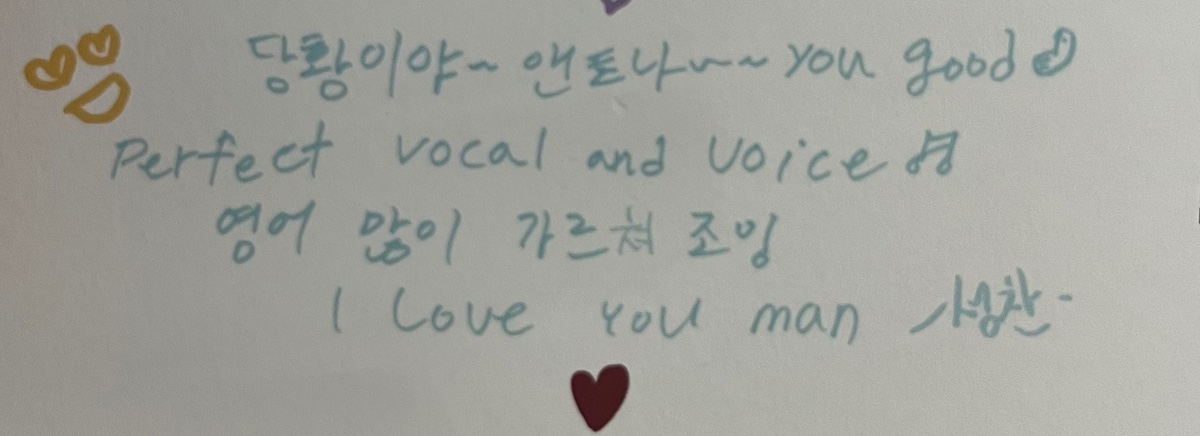 당황이야~ 앤톤나~~~ you good
Perfect vocal and voice
영어 많이 가르쳐 조잉
I Love you man 성찬-